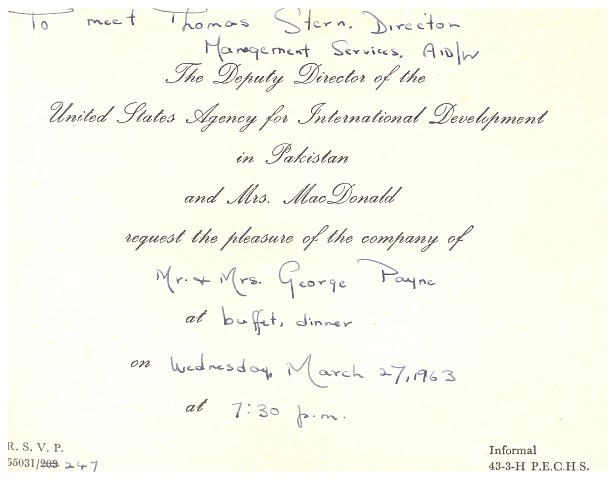 To meet Thomas Stern, Director
Management Services, AID/W
The Deputy Director of the
United States Agency for International Development
in Pakistan
and Mrs. MacDonald
request the pleasure of the company of
Mr. + Mrs. George Payne
at buffet, dinner
on Wednesday, March 27, 1963
at 7:30 p.m.
R. S. V. P.
55031/203 247
Informal
43-3-H P.E.C.H.S.